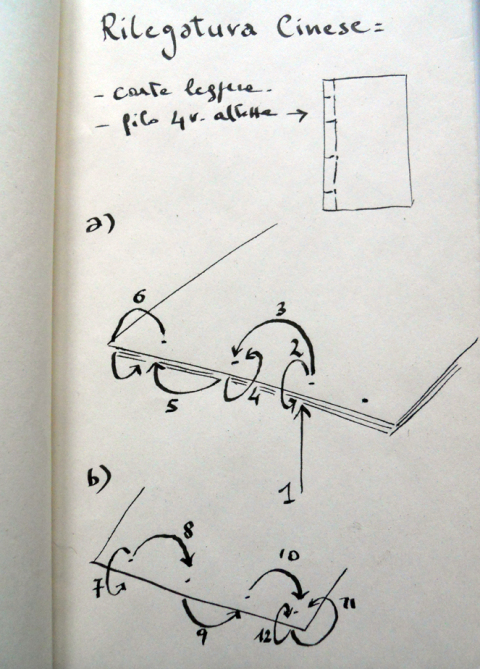 Rilegatura Cinese =
- carte leggere.
- filo 4 v. altezza →
a)
6
3
2
4
5
1
b)
8
10
7
11
9
12